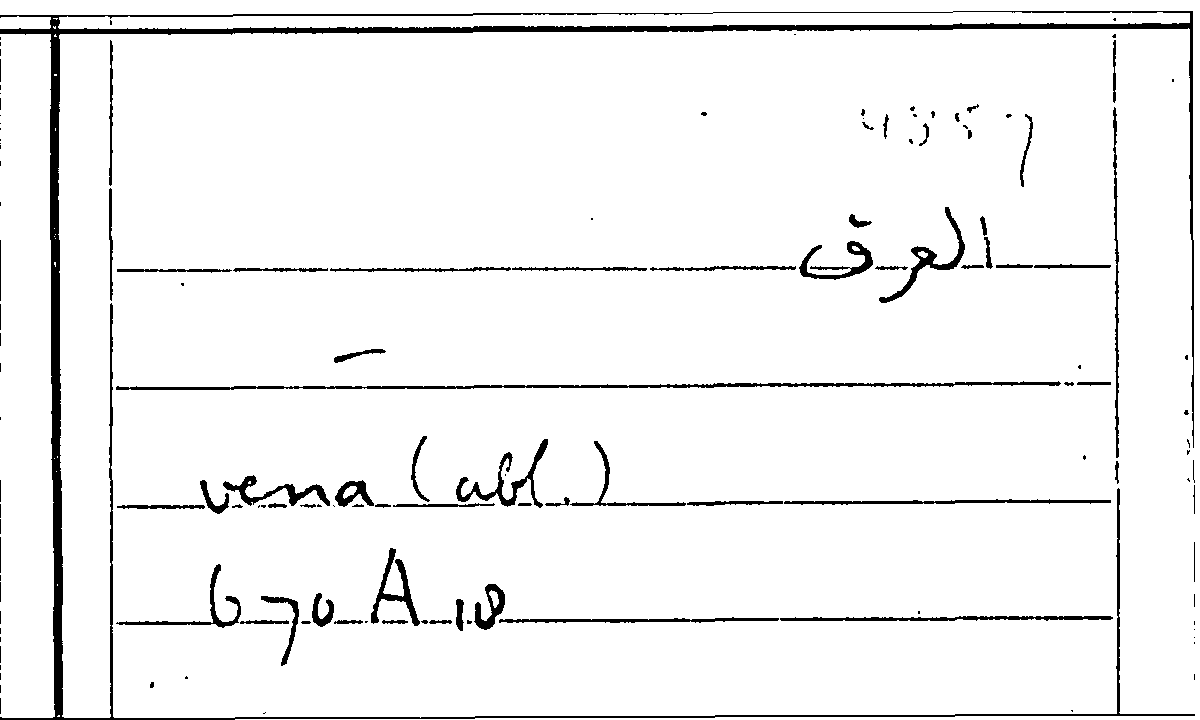 العرق
–
vena (abl.)
670 A 18